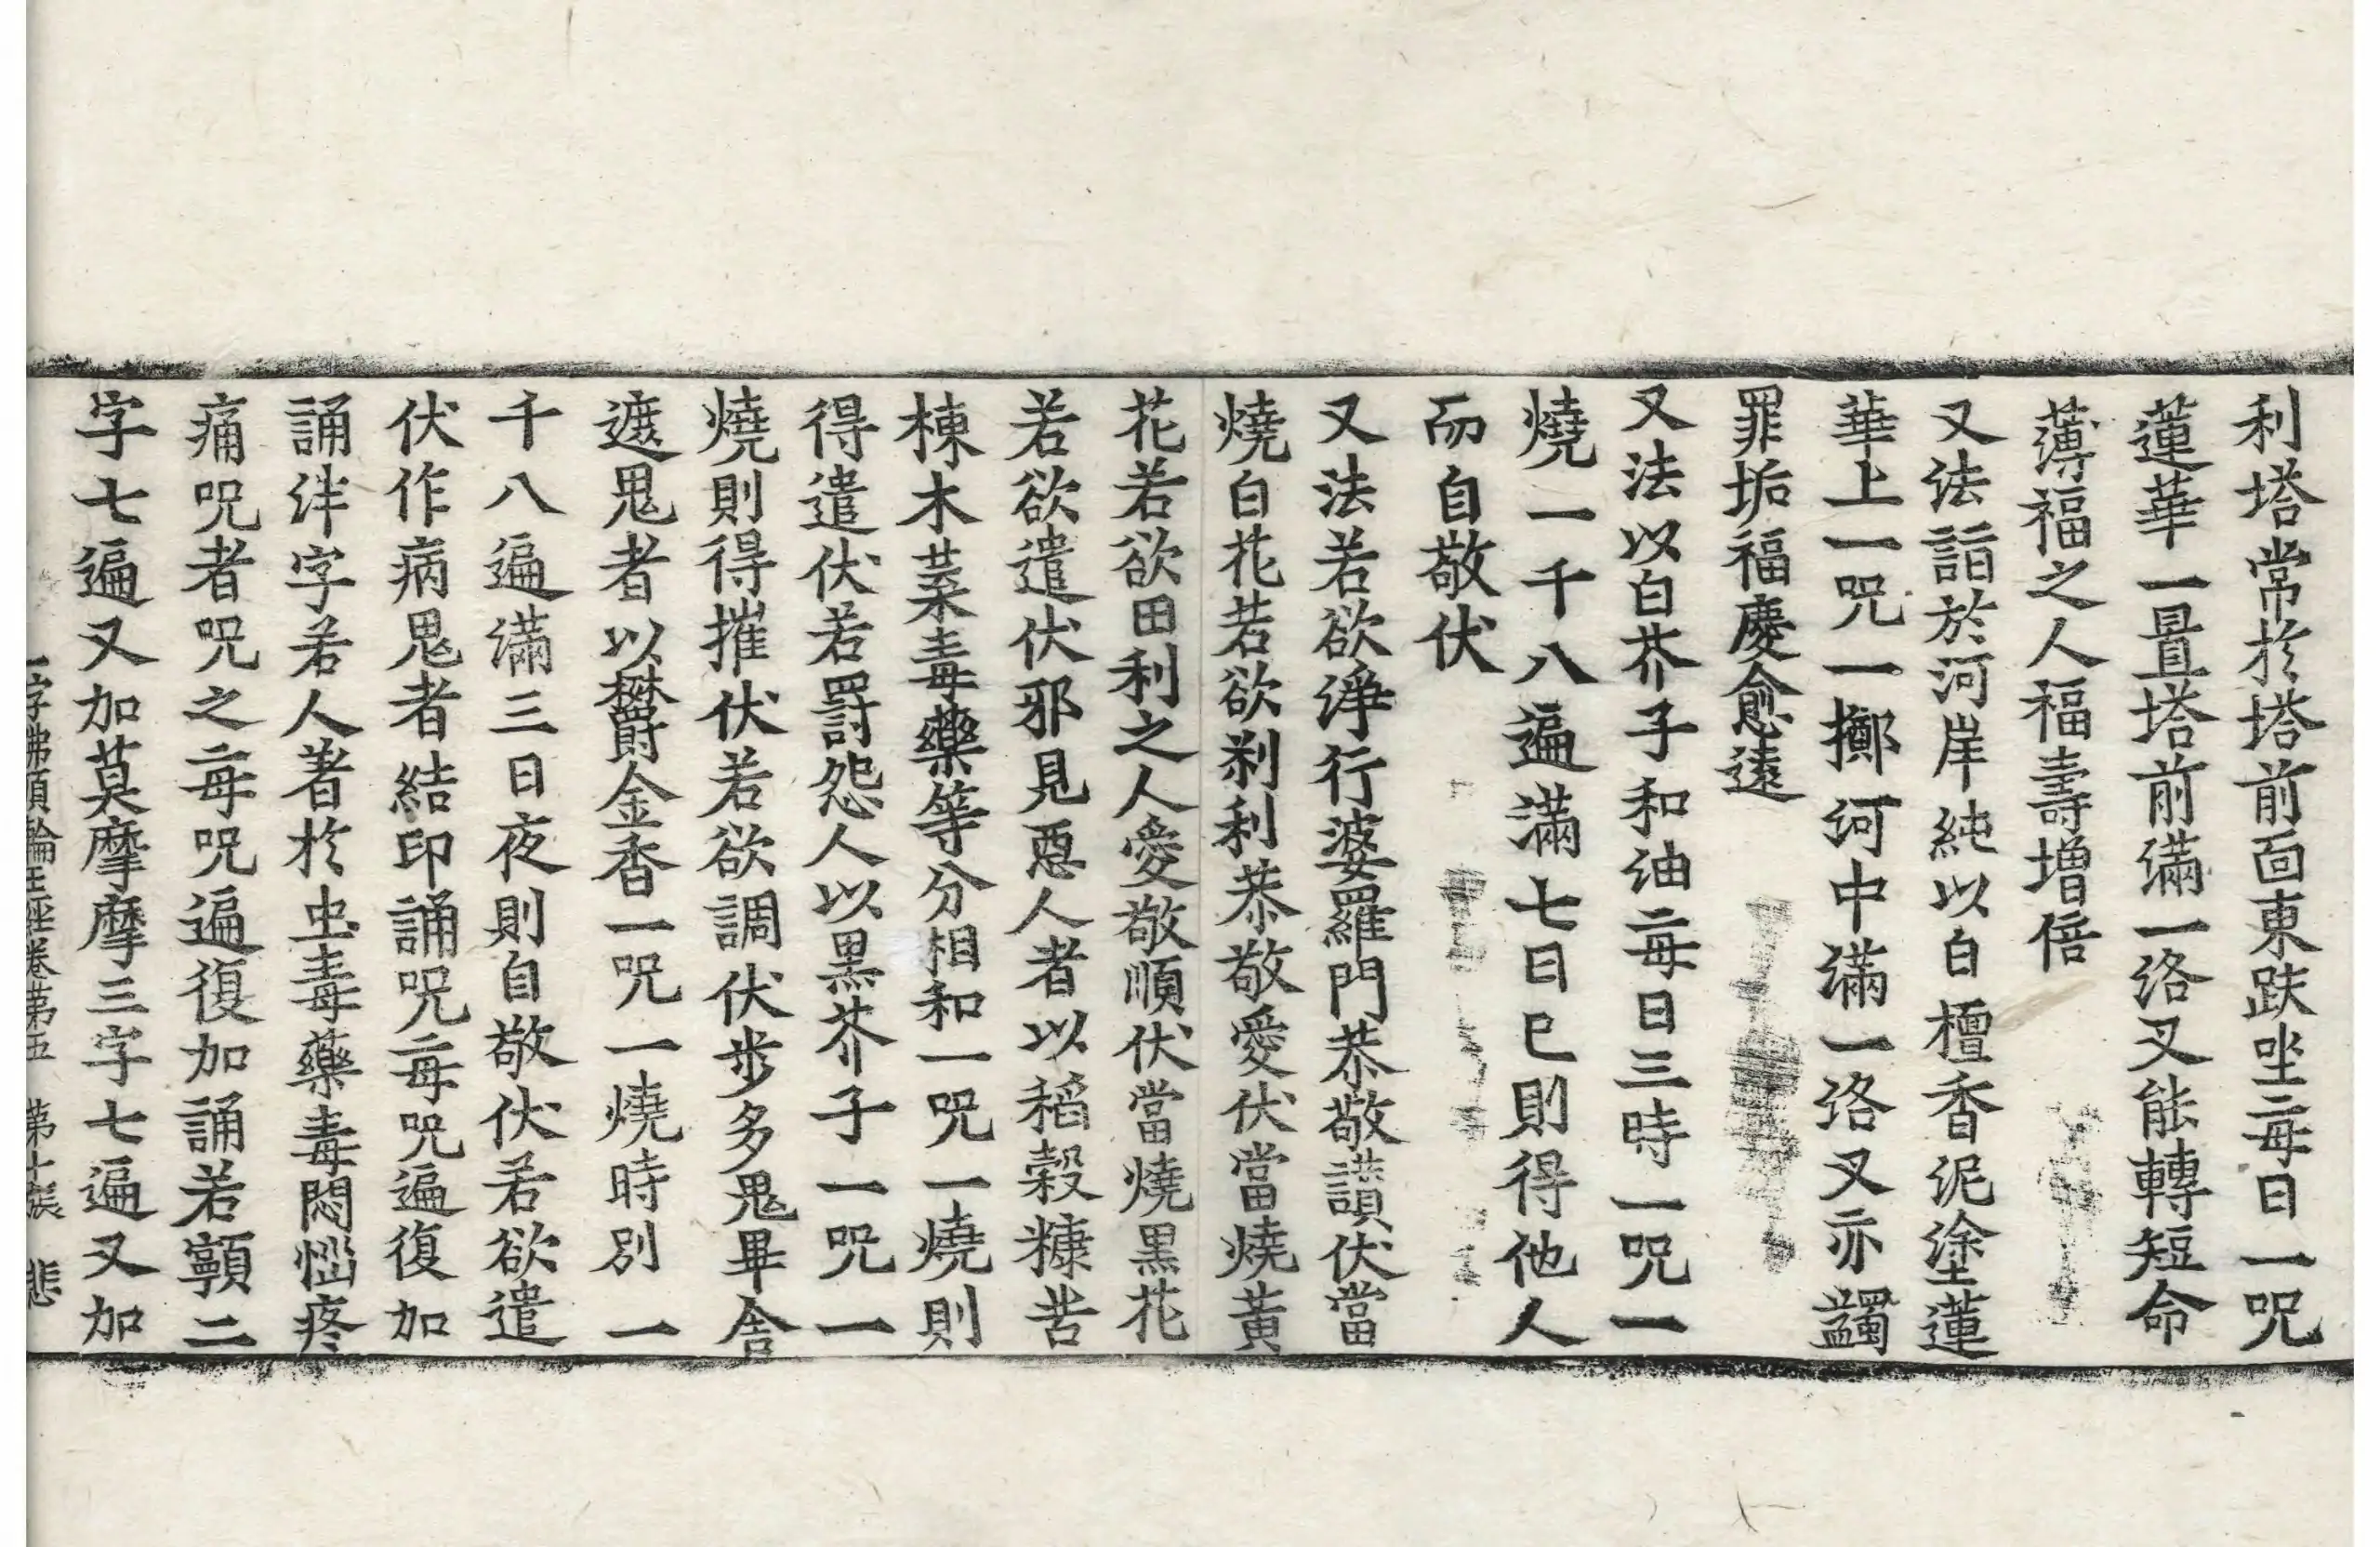 利塔常於塔前面東趺坐每日一呪
蓮華一置塔前滿一洛叉能轉短命
薄福之人福壽增倍
又法詣於河岸純以白檀香泥塗蓮
華上一呪一擲河中滿一洛叉亦蠲
罪垢福慶愈遠
又法以白芥子和油每日三時一呪一
燒一千八遍滿七日已則得他人
而自敬伏
又法若欲淨行婆羅門恭敬讚伏當
燒白花若欲刹利恭敬愛伏當燒黃
花若欲田利之人愛敬順伏當燒黑花
若欲遣伏邪見惡人者以稻穀糠苦
楝木葉毒藥等分相和一呪一燒則
得遣伏若罸怨人以黑芥子一呪一
燒則得摧伏若欲調伏步多鬼畢舍
遮鬼者以欝金香一呪一燒時別一
千八遍滿三日夜則自敬伏若欲遣
伏作病鬼者結印誦呪每呪遍復加
誦泮字若人著於虫毒藥毒悶惱疼
痛呪者呪之每呪遍復加誦若𤸷二
字七遍又加莫摩摩三字七遍又加
一字佛頂輪王經卷第五 第十張 悲